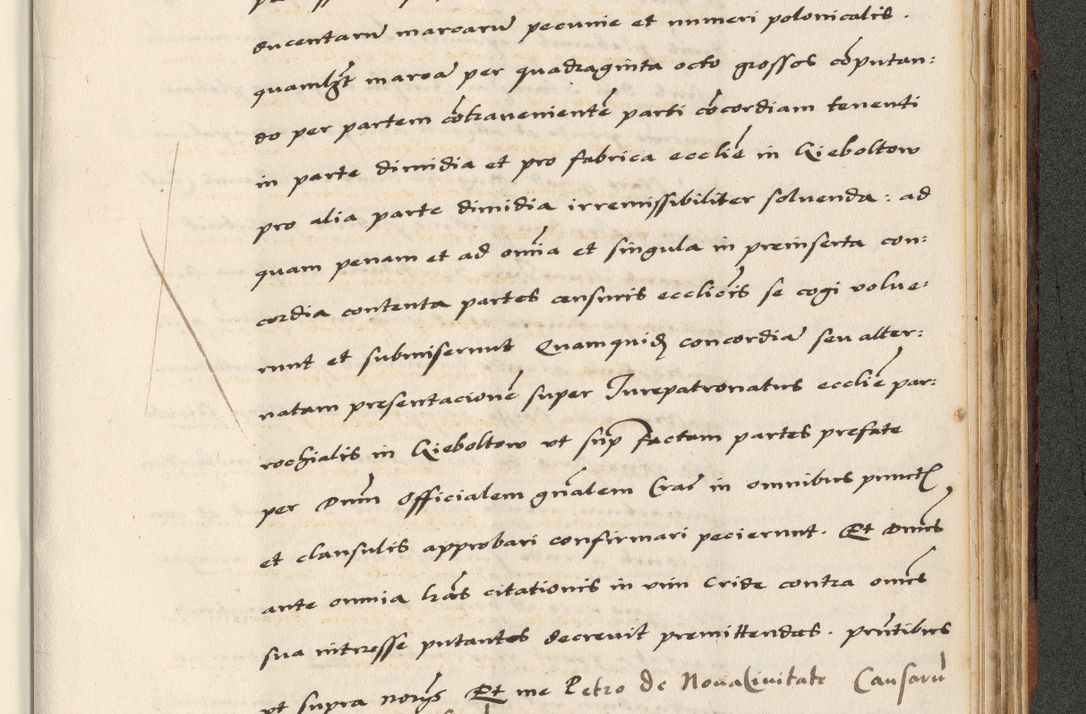 ducentarū marcarū pecunie et numeri polonicalis.
quamlꝫt marcā per quadraginta octo grossos cōputan:
do per partem cōtravenientē parti cōcordiam tenenti
in parte dimidia et pro fabrica ecclīe in Kieboltow
pro alia parte dimidia irremissibiliter solvenda: ad
quam penam et ad omīa et singula in preinserta con:
cordia contenta partes censuris ecclīcis se cogi volue:
runt et submiserunt Quamquidē concordiā seu alter:
natam presentacionē super Jurepatronatus ecclīe par:
rochialis in Kieboltow ut sup factam partes prefate
per Dnm Officialem gnālem Crac̄ in omnibus punctis
et clausulis approbari confirmari pecierunt. Et Dnūs
ante omnia lrās citationis in vim Cride contra omēs
sua interesse putantes decrevit premittendas. prntībus
ut supra norijs Et me Petro de Nova Civitate Causarū